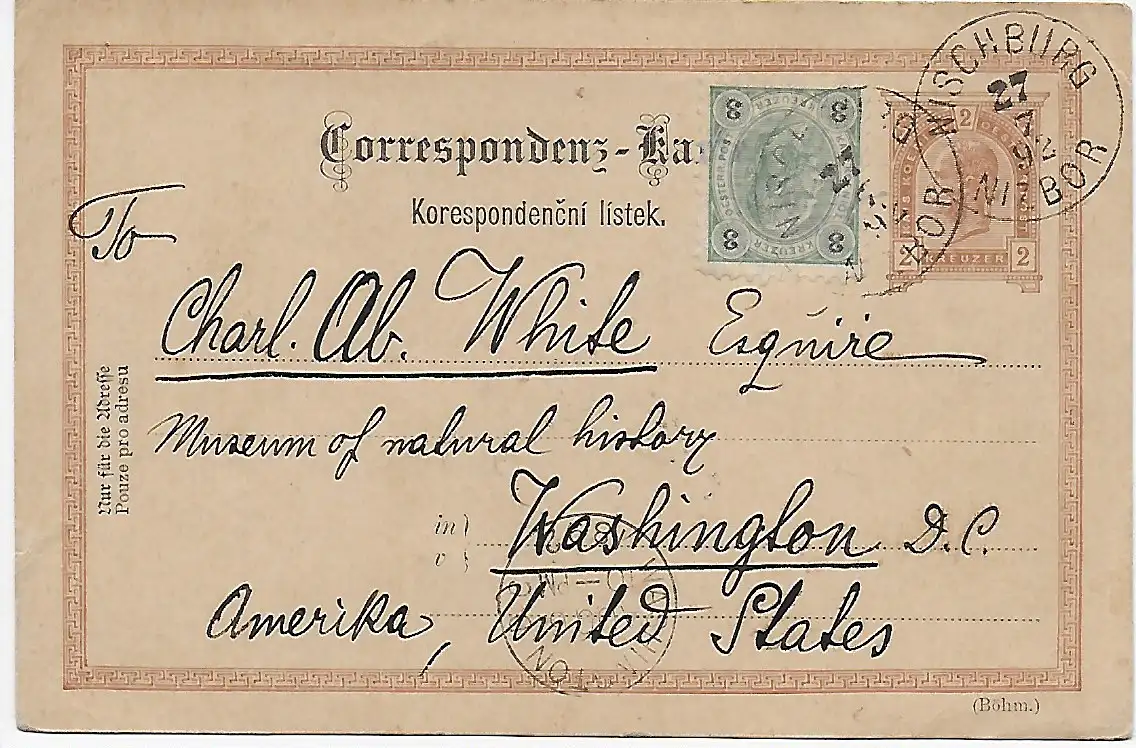 Correspondenz-Ka
Korespondenční lístek.
3 KREUZER 3
OESTERR. POST
3 KREUZER 3
2
2 KREUZER 2
NISCHBURG
27
NIŽBOR
To
Charl. Ab. White Esquire
Museum of natural history
in
v
Washington D.C.
Amerika, United States
Nur für die Adresse
Pouze pro adresu
(Böhm.)